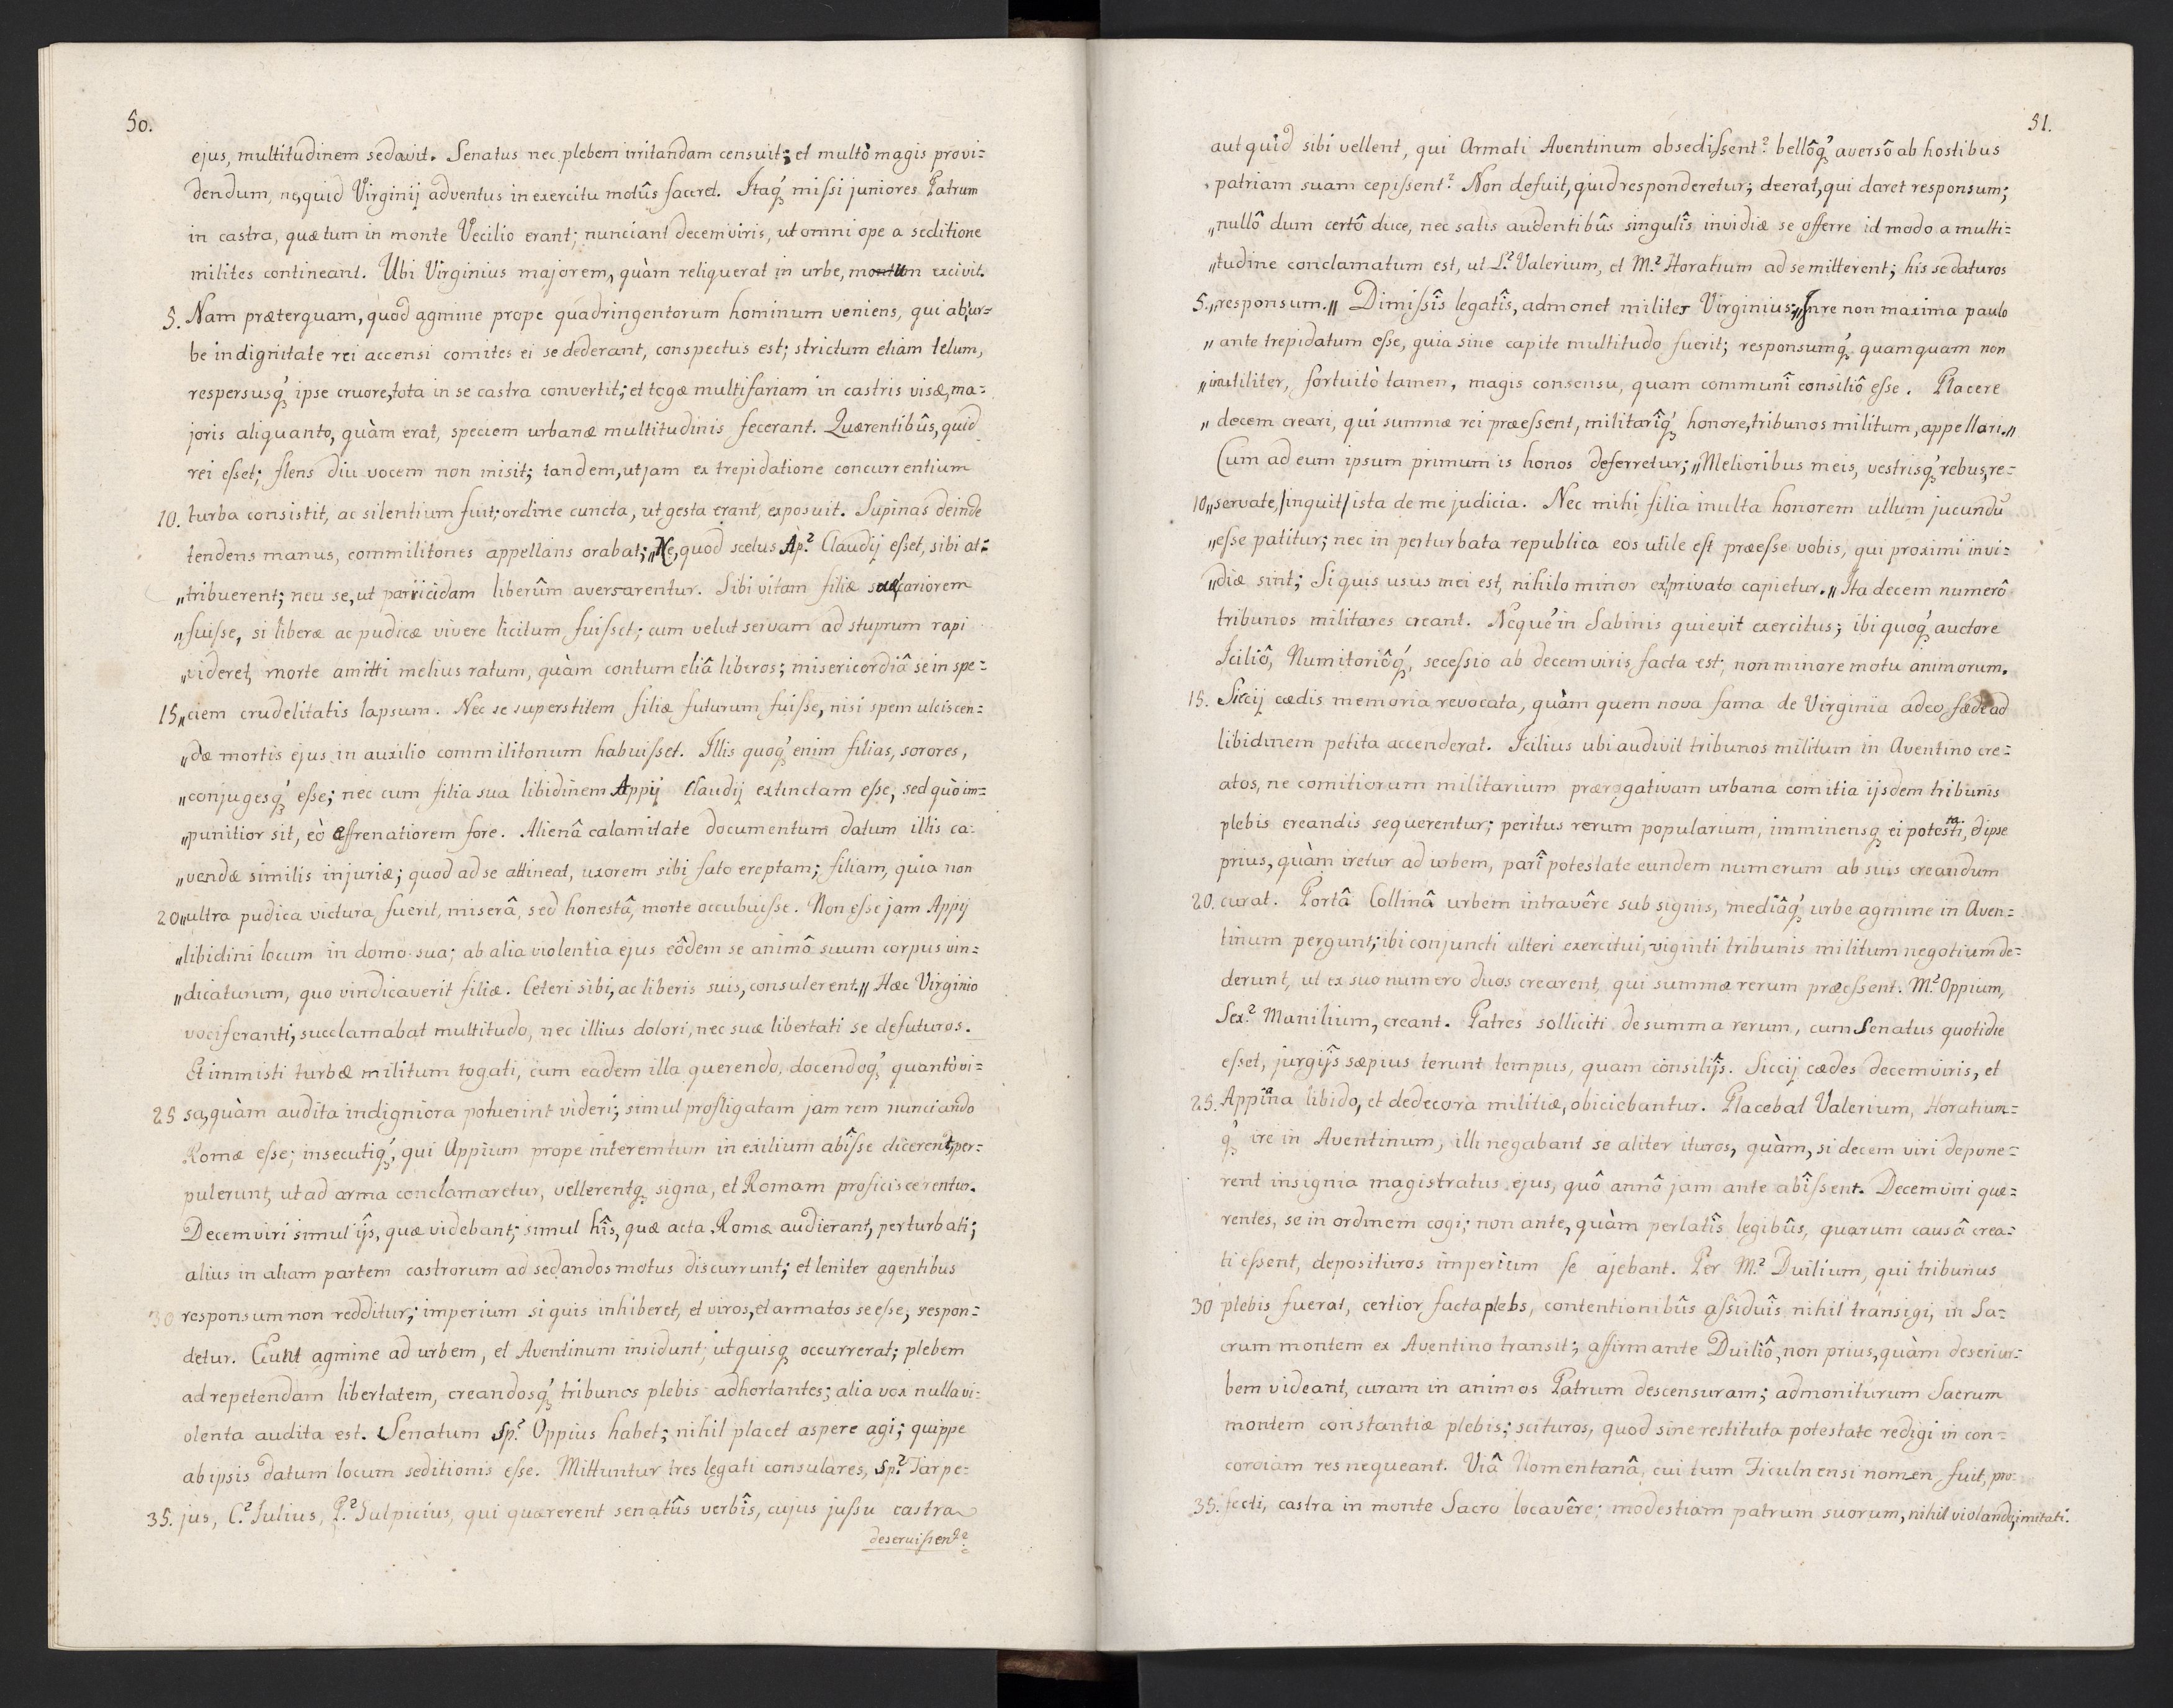 50.
ejus, multitudinem sedavit. Senatus nec plebem irritandam censuit; et multò magis provi=
dendum, ne quid Virginij adventus in exercitu motûs faceret. Itaq́ missi juniores Patrum
in castra, quæ tum in monte Vecilio erant; nunciant decemviris, ut omni ope a seditione
milites contineant. Ubi Virginius majorem, quàm reliquerat in urbe, motum excivit.
5. Nam præterquam, quòd agmine prope quadringentorum hominum veniens, qui ab ur=
be indignitate rei accensi comites ei se dederant, conspectus est; strictum etiam telum,
respersusq́ ipse cruore, tota in se castra convertit; et togæ multifariam in castris visæ, ma=
joris aliquanto, quàm erat, speciem urbanæ multitudinis fecerant. Quærentibûs, quid
rei esset; flens diu vocem non misit; tandem, ut jam ex trepidatione concurrentium
10. turba consistit, ac silentium fuit; ordine cuncta, ut gesta erant, exposuit. Supinas deinde
tendens manus, commilitones appellans orabat; „Ne, quod scelus Ap.⁠? Claudij esset, sibi at=
„tribuerent; neu se, ut parricidam liberûm aversarentur. Sibi vitam filiæ suæ cariorem
„fuisse, si liberæ ac pudicæ vivere licitum fuisset; cum velut servam ad stuprum rapi
„videret, morte amitti melius ratum, quàm contumeliâ liberos; misericordiâ se in spe=
15 „ciem crudelitatis lapsum. Nec se superstitem filiæ futurum fuisse, nisi spem ulciscen=
„dæ mortis ejus in auxilio commilitonum habuisset. Illis quoq́ enim filias, sorores,
„conjugesq́ esse; nec cum filia sua libidinem Appij Claudij extinctam esse, sed quò im=
„punitior sit, eò effrenatiorem fore. Alienâ calamitate documentum datum illis ca=
„vendæ similis injuriæ; quod ad se attineat, uxorem sibi fato ereptam; filiam, quia non
20 „ultra pudica victura fuerit, miserâ, sed honestâ, morte occubuisse. Non esse jam Appij
„libidini locum in domo sua; ab alia violentia ejus eôdem se animô suum corpus vin=
„dicaturum, quo vindicaverit filiæ. Ceteri sibi, ac liberis suis, consulerent.„ Hæc Virginio
vociferanti, succlamabat multitudo, nec illius dolori, nec suæ libertati se defuturos.
Et immisti turbæ militum togati, cum eadem illa querendo, docendoq́ quantò vi=
25 sa, quàm audita indigniora potuerint videri; simul profligatam jam rem nunciando
Romæ esse; insecutiq́, qui Appium prope interemtum in exilium abîsse dicerent, per=
pulerunt, ut ad arma conclamaretur, vellerentq signa, et Romam proficiscerentur.
Decemviri simul ijs, quæ videbant; simul hîs, quæ acta Romæ audierant, perturbati;
alius in aliam partem castrorum ad sedandos motus discurrunt; et leniter agentibus
30 responsum non redditur; imperium si quis inhiberet, et viros, et armatos se esse, respon=
detur. Eunt agmine ad urbem, et Aventinum insidunt; ut quisq occurrerat; plebem
ad repetendam libertatem, creandosq́ tribunos plebis adhortantes; alia vox nulla vi=
olenta audita est. Senatum Sp.? Oppius habet; nihil placet aspere agi; quippe
ab ipsis datum locum seditionis esse. Mittuntur tres legati consulares, Sp.? Tarpe=
35. jus, C.? Julius, P.? Sulpicius, qui quærerent senatûs verbîs, cujus jussu castra
deseruissent?
51.
aut quid sibi vellent, qui Armati Aventinum obsedissent? bellôq́ aversô ab hostibus
patriam suam cepissent? Non defuit, quid responderetur; deerat, qui daret responsum;
„nullô dum certô duce, nec satis audentibûs singulîs invidiæ se offerre id modo a multi=
„tudine conclamatum est, ut L.? Valerium, et M.? Horatium ad se mitterent; his se daturos
5. „responsum.„ Dimissîs legatîs, admonet milites Virginius; „In re non maxima paulo
„ante trepidatum esse, quia sine capite multitudo fuerit; responsumq́ quamquam non
„inutiliter, fortuitò tamen, magis consensu, quam communî consiliô esse. Placere
„decem creari, qui summæ rei præessent, militarîq́ honore, tribunos militum, appellari.„
Cum ad eum ipsum primum is honos deferretur; „Melioribus meis, vestrisq́ rebus, re=
10 „servate, /inquit/ ista de me judicia. Nec mihi filia inulta honorem ullum jucundū
„esse patitur; nec in perturbata republica eos utile est præesse vobis, qui proximi invi=
„diæ sint; Si quis usus mei est, nihilo minor ex privato capietur.„ Ita decem numerô
tribunos militares creant. Neque in Sabinis quievit exercitus; ibi quoq́ auctore
Iciliô, Numitoriôq́, secessio ab decemviris facta est; non minore motu animorum.
15. Siccij cædis memoria revocata, quàm quem nova fama de Virginia adeo fœde ad
libidinem petita accenderat. Icilius ubi audivit tribunos militum in Aventino cre=
atos, ne comitiorum militarium prærogativam urbana comitia ijsdem tribunis
plebis creandis sequerentur; peritus rerum popularium, imminensq ei potestati, et ipse
prius, quàm iretur ad urbem, parî potestate eundem numerum ab suis creandum
20. curat. Portâ Collinâ urbem intravêre sub signis, mediâq́ urbe agmine in Aven=
tinum pergunt; ibi conjuncti alteri exercitui, viginti tribunis militum negotium de=
derunt, ut ex suo numero duos crearent, qui summæ rerum præessent. M.? Oppium,
Sex.? Manilium, creant. Patres solliciti de summa rerum, cum Senatus quotidie
esset, jurgijs sæpius terunt tempus, quam consilijs. Siccij cædes decemviris, et
25. Appiana libido, et dedecora militiæ, obiciebantur. Placebat Valerium, Horatium=
q́ ire in Aventinum; illi negabant se aliter ituros, quàm, si decem viri depone=
rent insignia magistratus ejus, quô annô jam ante abîssent. Decemviri que=
rentes, se in ordinem cogi; non ante, quàm perlatîs legibûs, quarum causâ crea=
ti essent, deposituros imperium se ajebant. Per M.? Duilium, qui tribunus
30 plebis fuerat, certior facta plebs, contentionibûs assiduîs nihil transigi, in Sa=
crum montem ex Aventino transit; affirmante Duiliô, non prius, quàm deseri ur=
bem videant, curam in animos Patrum descensuram; admoniturum Sacrum
montem constantiæ plebis; scituros, quod sine restituta potestate redigi in con=
cordiam res nequeant. Viâ Nomentanâ, cui tum Ficulnensi nomen fuit, pro=
35. fecti, castra in monte Sacro locavêre; modestiam patrum suorum, nihil violando, imitati.